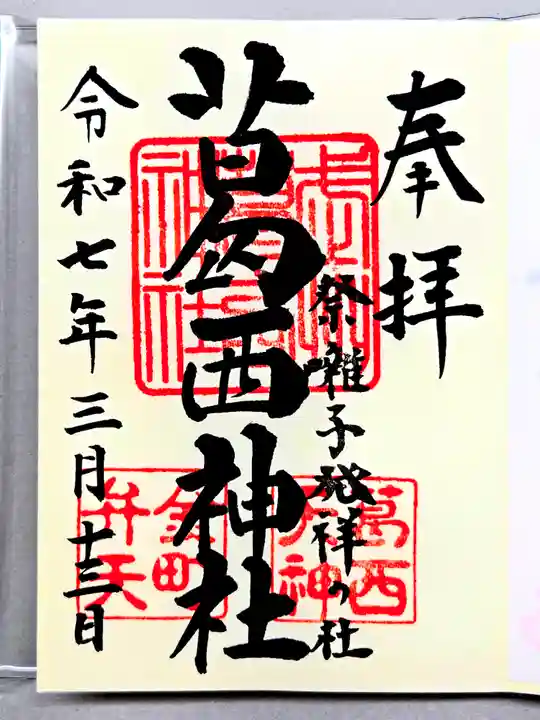 奉拝
祭囃子発祥の社
葛西神社
令和七年三月十三日
葛西
神
金町
弁天